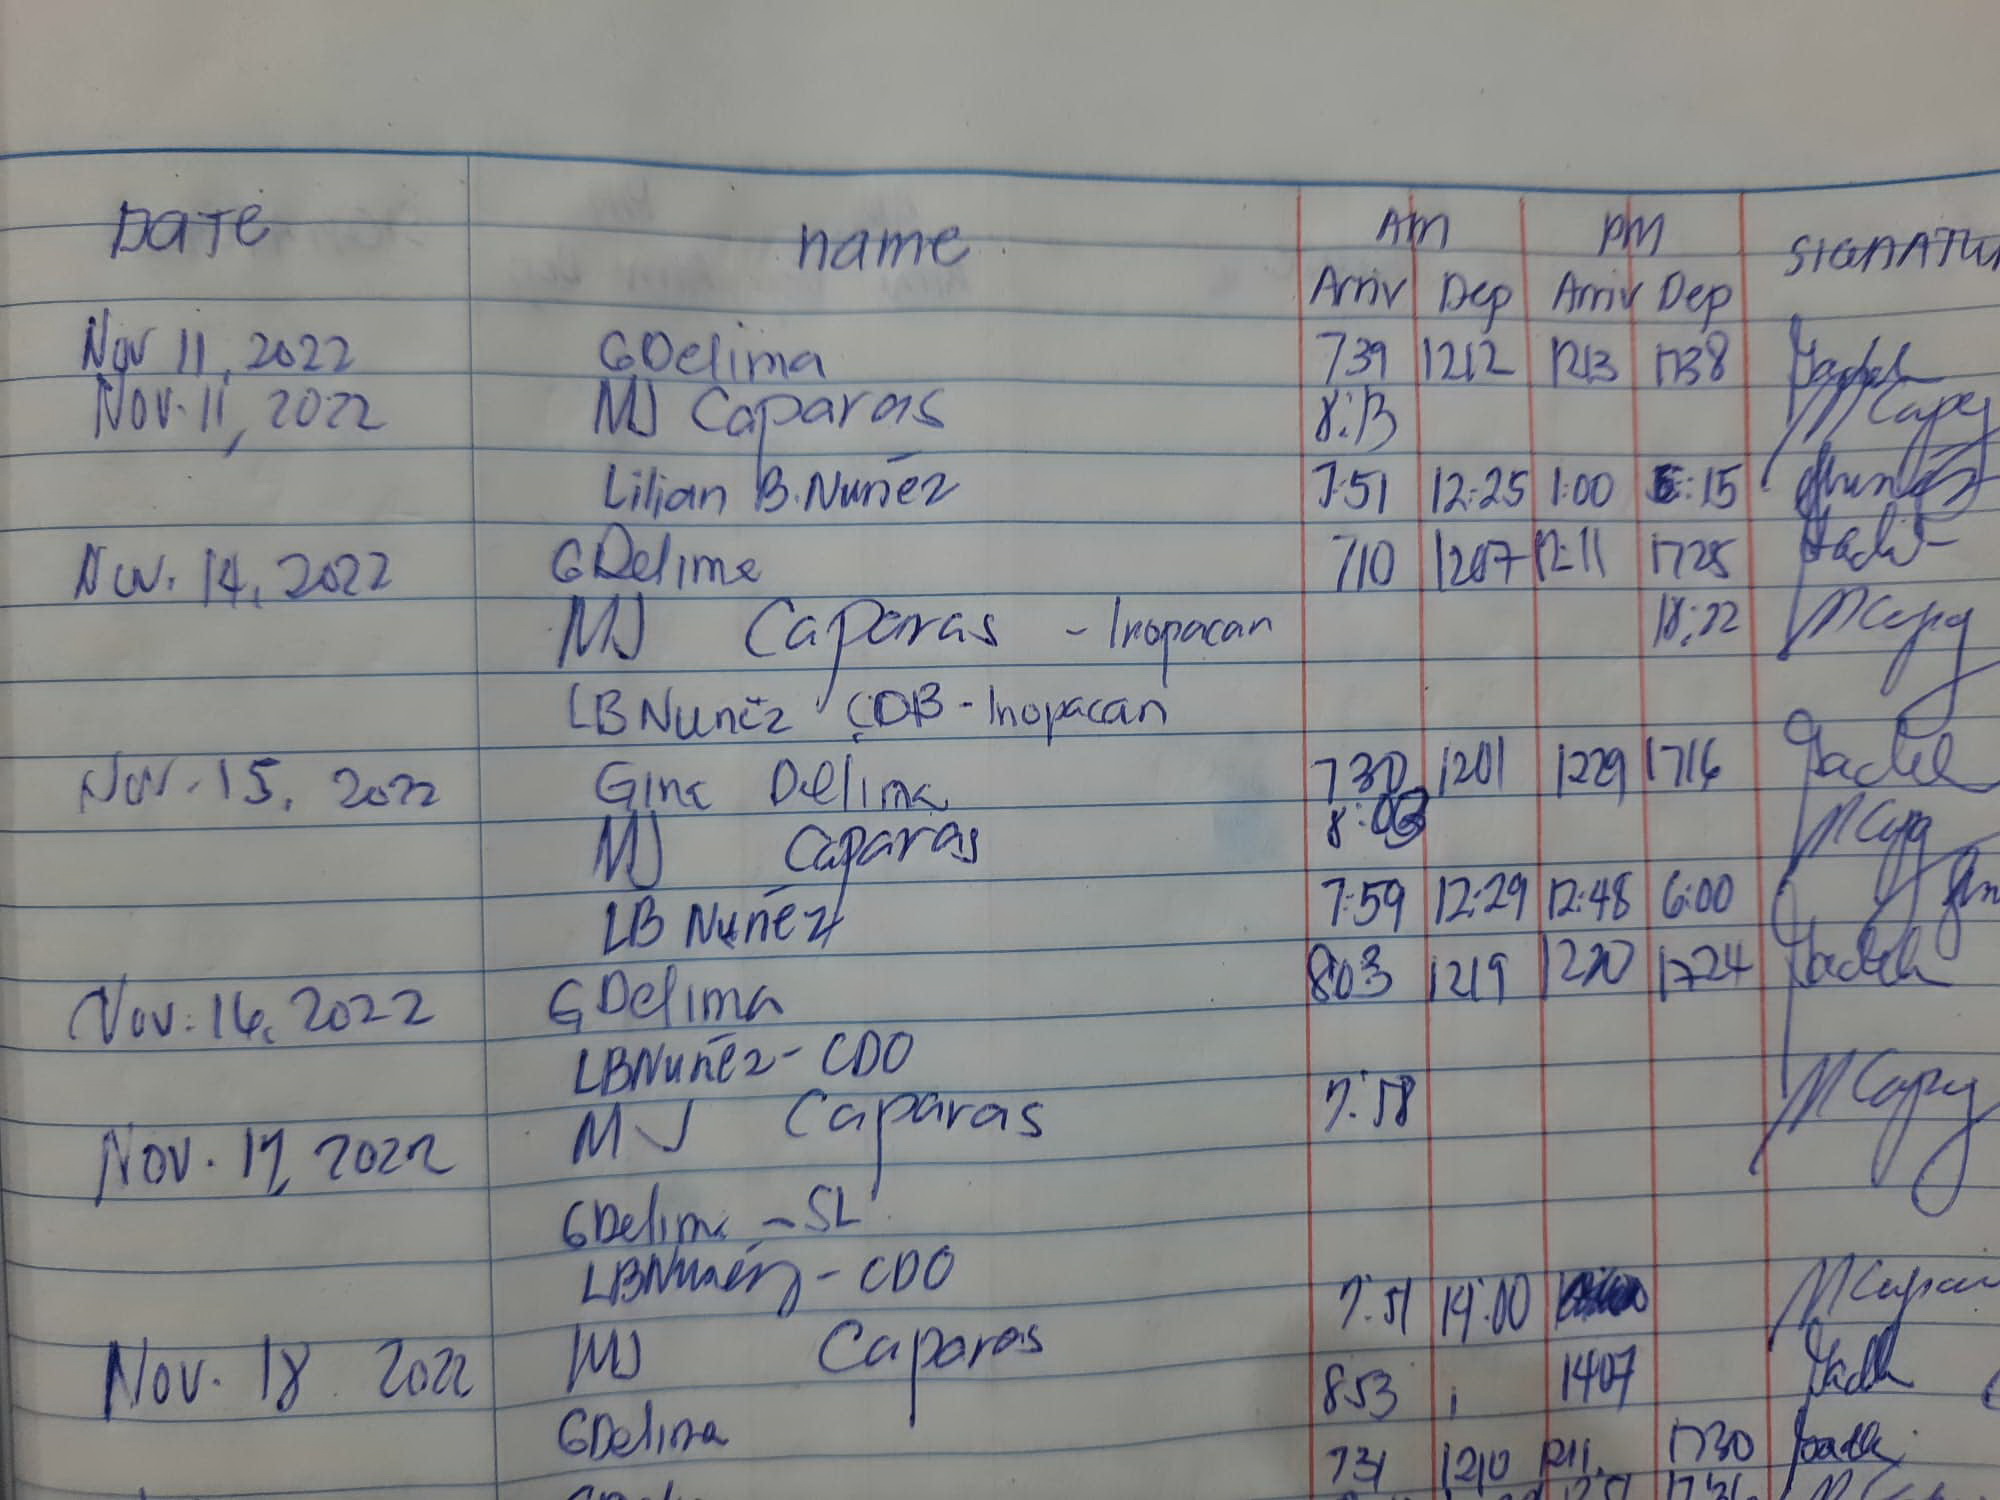 DATE name AM PM SIGNATU
Arriv Dep Arriv Dep
Nov 11, 2022 GDelima 739 1212 1213 1738
Nov. 11, 2022 MJ Caparas 8:13 MCapa
Lilian B. Nuñez 7:51 12:25 1:00 5:15
Nov. 14, 2022 GDelima 710 1207 12:11 1725
MJ Caparas - Inopacan 18:22
LB Nuñez CDB - Inopacan
Nov. 15, 2022 Gina Delima 730 1201 1229 1716
MJ Caparas
LB Nuñez 7:59 12:29 12:48 6:00
Nov. 16, 2022 GDelima 803 1219 1220 1724
LBNuñez - CDO
Nov. 17, 2022 MJ Caparas 7:58
GDelima - SL
LBNuñez - CDO
Nov. 18 2022 MJ Caparas 7:51 14:00
GDelima 853 1407
731 1210 1211 1730